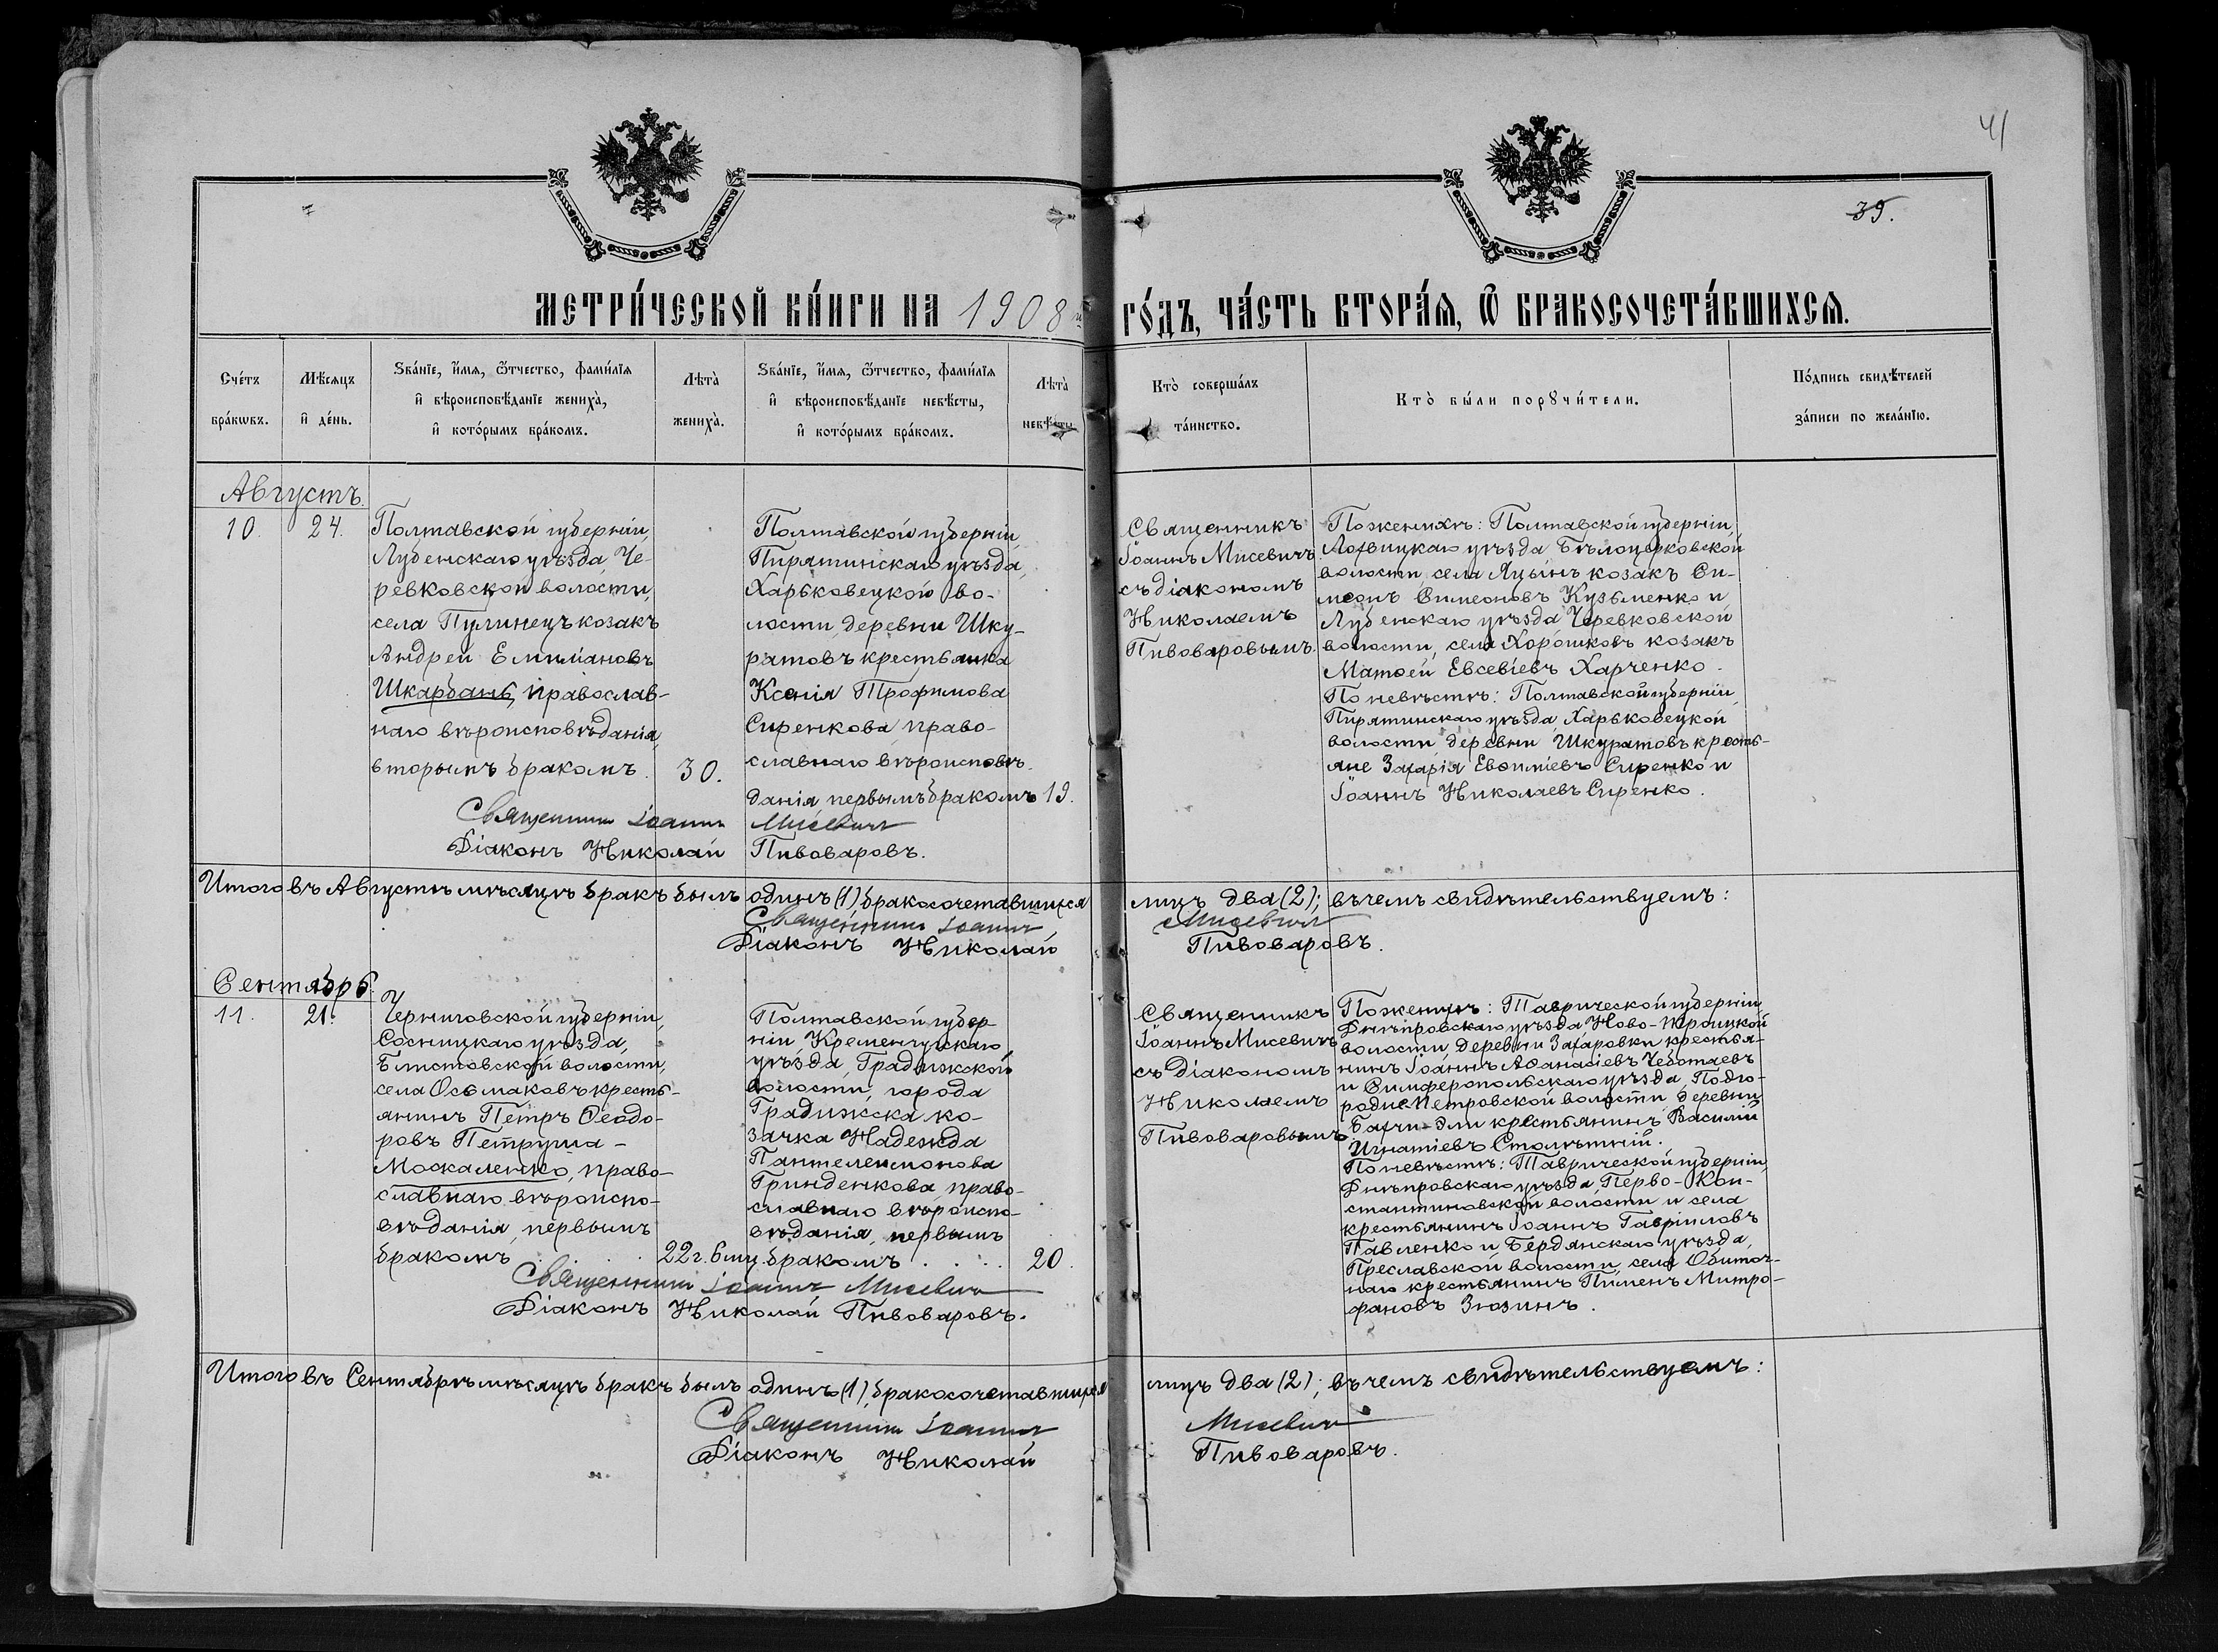 41
39.
МЕТРИ́ЧЕСКОЙ КНИ́ГИ НА 1908й ГО́ДЪ, ЧА́СТЬ ВТОРА́Я, Ѿ БРАКОСОЧЕТА́ВШИХСЯ.
Сче́тъ
бра́кѡвъ.
Мѣ́сяцъ
и҆ де́нь.
Ѕва́нїе, и҆́мя, ѻ҆́тчество, фами́лїя
и҆ вѣроисповѣ́данїе жениха̀,
и҆ кото́рымъ бра́комъ.
Лѣта̀
жениха̀.
Ѕва́нїе, и҆́мя, ѻ҆́тчество, фами́лїя
и҆ вѣроисповѣ́данїе невѣ́сты,
и҆ кото́рымъ бра́комъ.
Лѣта̀
невѣ́сты.
Кто̀ соверша́лъ
та́инство.
Кто̀ бы́ли порꙋчи́тели.
По́дпись свидѣ́телей
за́писи по жела́нїю.
Августъ.
10.
24.
Полтавской губерніи,
Лубенскаго уѣзда, Че-
ревковской волости,
села Пулинецъ козакъ
Андрей Емиліановъ
Шкарбанъ, православ-
наго вѣроисповѣданія,
вторымъ бракомъ.
30.
Полтавской губерніи,
Пирятинскаго уѣзда,
Харьковецкой во-
лости, деревни Шку-
ратовъ крестьянка
Ксенія Трофимова
Сиренкова, право-
славнаго вѣроисповѣ-
данія, первымъ бракомъ
19.
Священникъ
Іоаннъ Мисевичъ
съ діакономъ
Николаемъ
Пивоваровымъ.
По женихѣ: Полтавской губерніи,
Лохвицкаго уѣзда, Бѣлоцерковской
волости, села Яцынъ козакъ Си-
меонъ Симеоновъ Кузьменко и
Лубенскаго уѣзда Черевковской
волости, села Хорошковъ козакъ
Матѳей Евсевіевъ Харченко.
По невѣстѣ: Полтавской губерніи,
Пирятинскаго уѣзда, Харьковецкой
волости, деревни Шкуратовъ кресть-
яне Захарія Евѳиміевъ Сиренко и
Іоаннъ Николаевъ Сиренко.
Священникъ Іоаннъ Мисевичъ
Діаконъ Николай Пивоваровъ.
Итого въ Августѣ мѣсяцѣ бракъ былъ одинъ (1), бракосочетавшихся лицъ два (2); въ чемъ свидѣтельствуемъ:
Священникъ Іоаннъ Мисевичъ
Діаконъ Николай Пивоваровъ.
Сентябрь.
11.
21.
Черниговской губерніи,
Сосницкаго уѣзда,
Блистовской волости,
села Осьмаковъ кресть-
янинъ Петръ Ѳеодо-
ровъ Петруша-
Москаленко, право-
славнаго вѣроиспо-
вѣданія, первымъ
бракомъ
22 г. 6 мц.
Полтавской губер-
ніи, Кременчугскаго
уѣзда, Градижской
волости, города
Градижска ко-
зачка Надежда
Пантелеимонова
Гринденкова, право-
славнаго вѣроиспо-
вѣданія, первымъ
бракомъ . . . .
20.
Священникъ
Іоаннъ Мисевичъ
съ діакономъ
Николаемъ
Пивоваровымъ.
По женихѣ: Таврической губерніи,
Днѣпровскаго уѣзда Ново-Троицкой
волости, деревни Захаровки крестья-
нинъ Іоаннъ Аѳанасіевъ Чеботаевъ
и Симферопольскаго уѣзда, Подго-
родне-Петровской волости деревни
Бахчи-Эли крестьянинъ Василій
Игнатіевъ Столѣтній.
По невѣстѣ: Таврической губерніи,
Днѣпровскаго уѣзда Перво-Кон-
стантиновской волости и села
крестьянинъ Іоаннъ Гавріиловъ
Павленко и Бердянскаго уѣзда,
Преславской волости, села Обиточ-
наго крестьянинъ Пименъ Митро-
фановъ Зюзинъ.
Священникъ Іоаннъ Мисевичъ
Діаконъ Николай Пивоваровъ.
Итого въ Сентябрѣ мѣсяцѣ бракъ былъ одинъ (1), бракосочетавшихся лицъ два (2); въ чемъ свидѣтельствуемъ:
Священникъ Іоаннъ Мисевичъ
Діаконъ Николай Пивоваровъ.